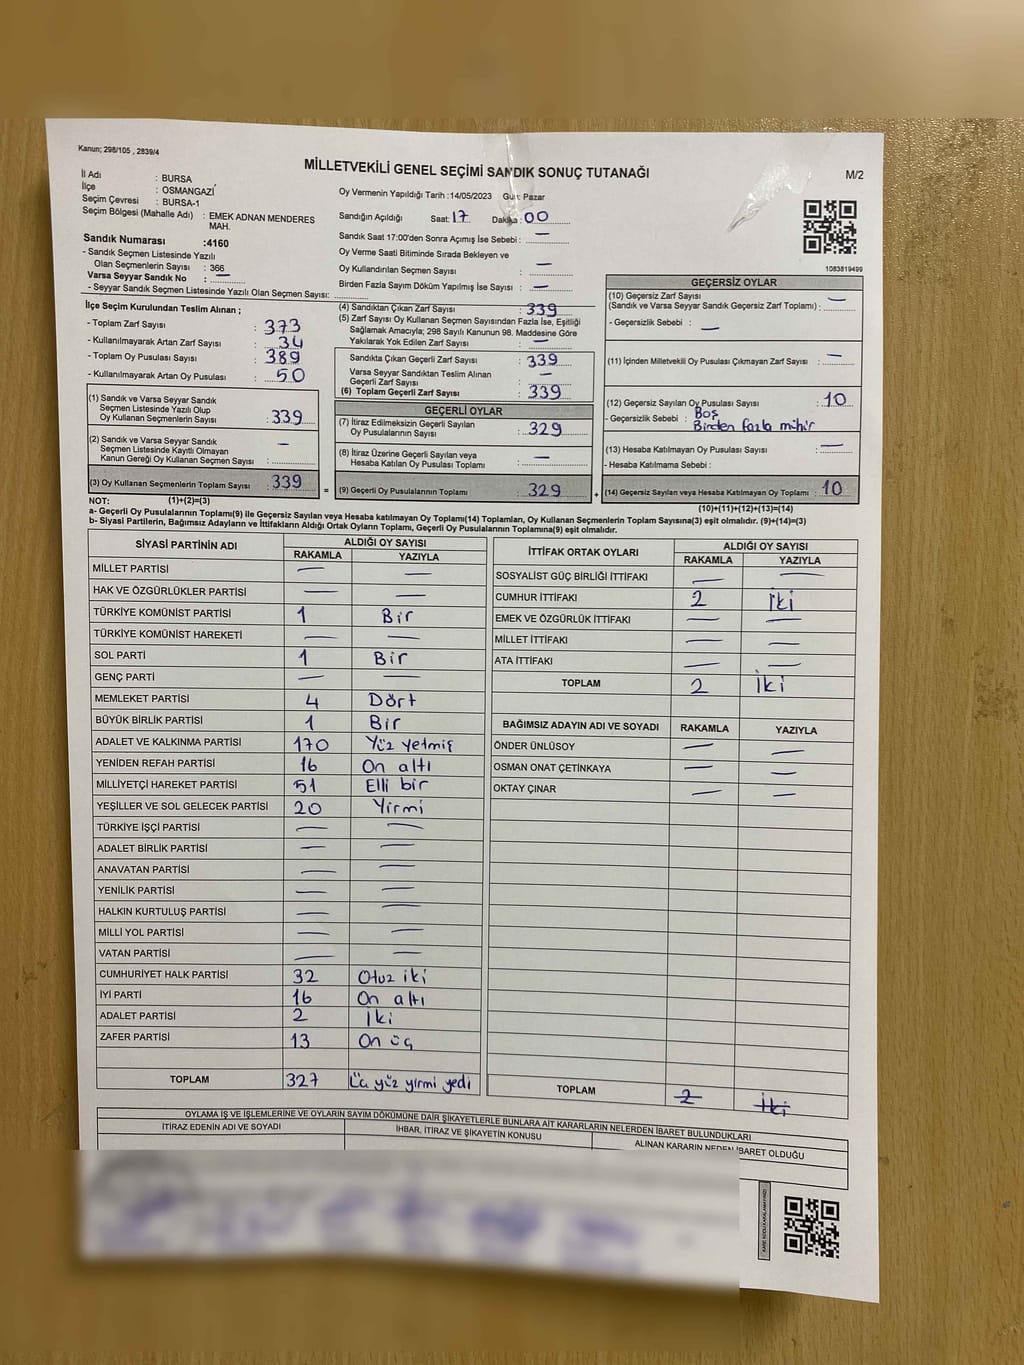 Kanun; 298/105 , 2839/4
MİLLETVEKİLİ GENEL SEÇİMİ SANDIK SONUÇ TUTANAĞI
M/2
İl Adı : BURSA
İlçe : OSMANGAZİ
Seçim Çevresi : BURSA-1
Seçim Bölgesi (Mahalle Adı) : EMEK ADNAN MENDERES MAH.
Sandık Numarası :4160
- Sandık Seçmen Listesinde Yazılı
Olan Seçmenlerin Sayısı : 366
Varsa Seyyar Sandık No : —
- Seyyar Sandık Seçmen Listesinde Yazılı Olan Seçmen Sayısı:
Oy Vermenin Yapıldığı Tarih :14/05/2023 Gün: Pazar
Sandığın Açıldığı Saat: 17 Dakika: 00
Sandık Saat 17:00'den Sonra Açımış İse Sebebi : —
Oy Verme Saati Bitiminde Sırada Bekleyen ve
Oy Kullandırılan Seçmen Sayısı : —
Birden Fazla Sayım Döküm Yapılmış İse Sayısı : —
1083819499
İlçe Seçim Kurulundan Teslim Alınan ;
- Toplam Zarf Sayısı : 373
- Kullanılmayarak Artan Zarf Sayısı : 34
- Toplam Oy Pusulası Sayısı : 389
- Kullanılmayarak Artan Oy Pusulası : 50
(1) Sandık ve Varsa Seyyar Sandık
Seçmen Listesinde Yazılı Olup
Oy Kullanan Seçmenlerin Sayısı : 339
(2) Sandık ve Varsa Seyyar Sandık
Seçmen Listesinde Kayıtlı Olmayan
Kanun Gereği Oy Kullanan Seçmen Sayısı : —
(3) Oy Kullanan Seçmenlerin Toplam Sayısı : 339
(4) Sandıktan Çıkan Zarf Sayısı : 339
(5) Zarf Sayısı Oy Kullanan Seçmen Sayısından Fazla İse, Eşitliği
Sağlamak Amacıyla; 298 Sayılı Kanunun 98. Maddesine Göre
Yakılarak Yok Edilen Zarf Sayısı : —
Sandıkta Çıkan Geçerli Zarf Sayısı : 339
Varsa Seyyar Sandıktan Teslim Alınan
Geçerli Zarf Sayısı : —
(6) Toplam Geçerli Zarf Sayısı : 339
GEÇERLİ OYLAR
(7) İtiraz Edilmeksizin Geçerli Sayılan
Oy Pusulalarının Sayısı : 329
(8) İtiraz Üzerine Geçerli Sayılan veya
Hesaba Katılan Oy Pusulası Toplamı : —
= (9) Geçerli Oy Pusulalarının Toplamı : 329
GEÇERSİZ OYLAR
(10) Geçersiz Zarf Sayısı
(Sandık ve Varsa Seyyar Sandık Geçersiz Zarf Toplamı) : —
- Geçersizlik Sebebi : —
(11) İçinden Milletvekili Oy Pusulası Çıkmayan Zarf Sayısı : —
(12) Geçersiz Sayılan Oy Pusulası Sayısı : 10
- Geçersizlik Sebebi : Boş
Birden fazla mihir
(13) Hesaba Katılmayan Oy Pusulası Sayısı : —
- Hesaba Katılmama Sebebi :
+ (14) Geçersiz Sayılan veya Hesaba Katılmayan Oy Toplamı : 10
NOT: (1)+(2)=(3) (10)+(11)+(12)+(13)=(14)
a- Geçerli Oy Pusulalarının Toplamı(9) ile Geçersiz Sayılan veya Hesaba katılmayan Oy Toplamı(14) Toplamları, Oy Kullanan Seçmenlerin Toplam Sayısına(3) eşit olmalıdır. (9)+(14)=(3)
b- Siyasi Partilerin, Bağımsız Adayların ve İttifakların Aldığı Ortak Oyların Toplamı, Geçerli Oy Pusulalarının Toplamına(9) eşit olmalıdır.
SİYASİ PARTİNİN ADI ALDIĞI OY SAYISI
RAKAMLA YAZIYLA
MİLLET PARTİSİ — —
HAK VE ÖZGÜRLÜKLER PARTİSİ — —
TÜRKİYE KOMÜNİST PARTİSİ 1 Bir
TÜRKİYE KOMÜNİST HAREKETİ — —
SOL PARTİ 1 Bir
GENÇ PARTİ — —
MEMLEKET PARTİSİ 4 Dört
BÜYÜK BİRLİK PARTİSİ 1 Bir
ADALET VE KALKINMA PARTİSİ 170 Yüz yetmiş
YENİDEN REFAH PARTİSİ 16 On altı
MİLLİYETÇİ HAREKET PARTİSİ 51 Elli bir
YEŞİLLER VE SOL GELECEK PARTİSİ 20 Yirmi
TÜRKİYE İŞÇİ PARTİSİ — —
ADALET BİRLİK PARTİSİ — —
ANAVATAN PARTİSİ — —
YENİLİK PARTİSİ — —
HALKIN KURTULUŞ PARTİSİ — —
MİLLİ YOL PARTİSİ — —
VATAN PARTİSİ — —
CUMHURİYET HALK PARTİSİ 32 Otuz iki
İYİ PARTİ 16 On altı
ADALET PARTİSİ 2 İki
ZAFER PARTİSİ 13 On üç
TOPLAM 327 Üç yüz yirmi yedi
İTTİFAK ORTAK OYLARI ALDIĞI OY SAYISI
RAKAMLA YAZIYLA
SOSYALİST GÜÇ BİRLİĞİ İTTİFAKI — —
CUMHUR İTTİFAKI 2 İki
EMEK VE ÖZGÜRLÜK İTTİFAKI — —
MİLLET İTTİFAKI — —
ATA İTTİFAKI — —
TOPLAM 2 İki
BAĞIMSIZ ADAYIN ADI VE SOYADI RAKAMLA YAZIYLA
ÖNDER ÜNLÜSOY — —
OSMAN ONAT ÇETİNKAYA — —
OKTAY ÇINAR — —
TOPLAM 2 İki
OYLAMA İŞ VE İŞLEMLERİNE VE OYLARIN SAYIM DÖKÜMÜNE DAİR ŞİKAYETLERLE BUNLARA AİT KARARLARIN NELERDEN İBARET BULUNDUKLARI
İTİRAZ EDENİN ADI VE SOYADI İHBAR, İTİRAZ VE ŞİKAYETİN KONUSU ALINAN KARARIN NEDEN İBARET OLDUĞU